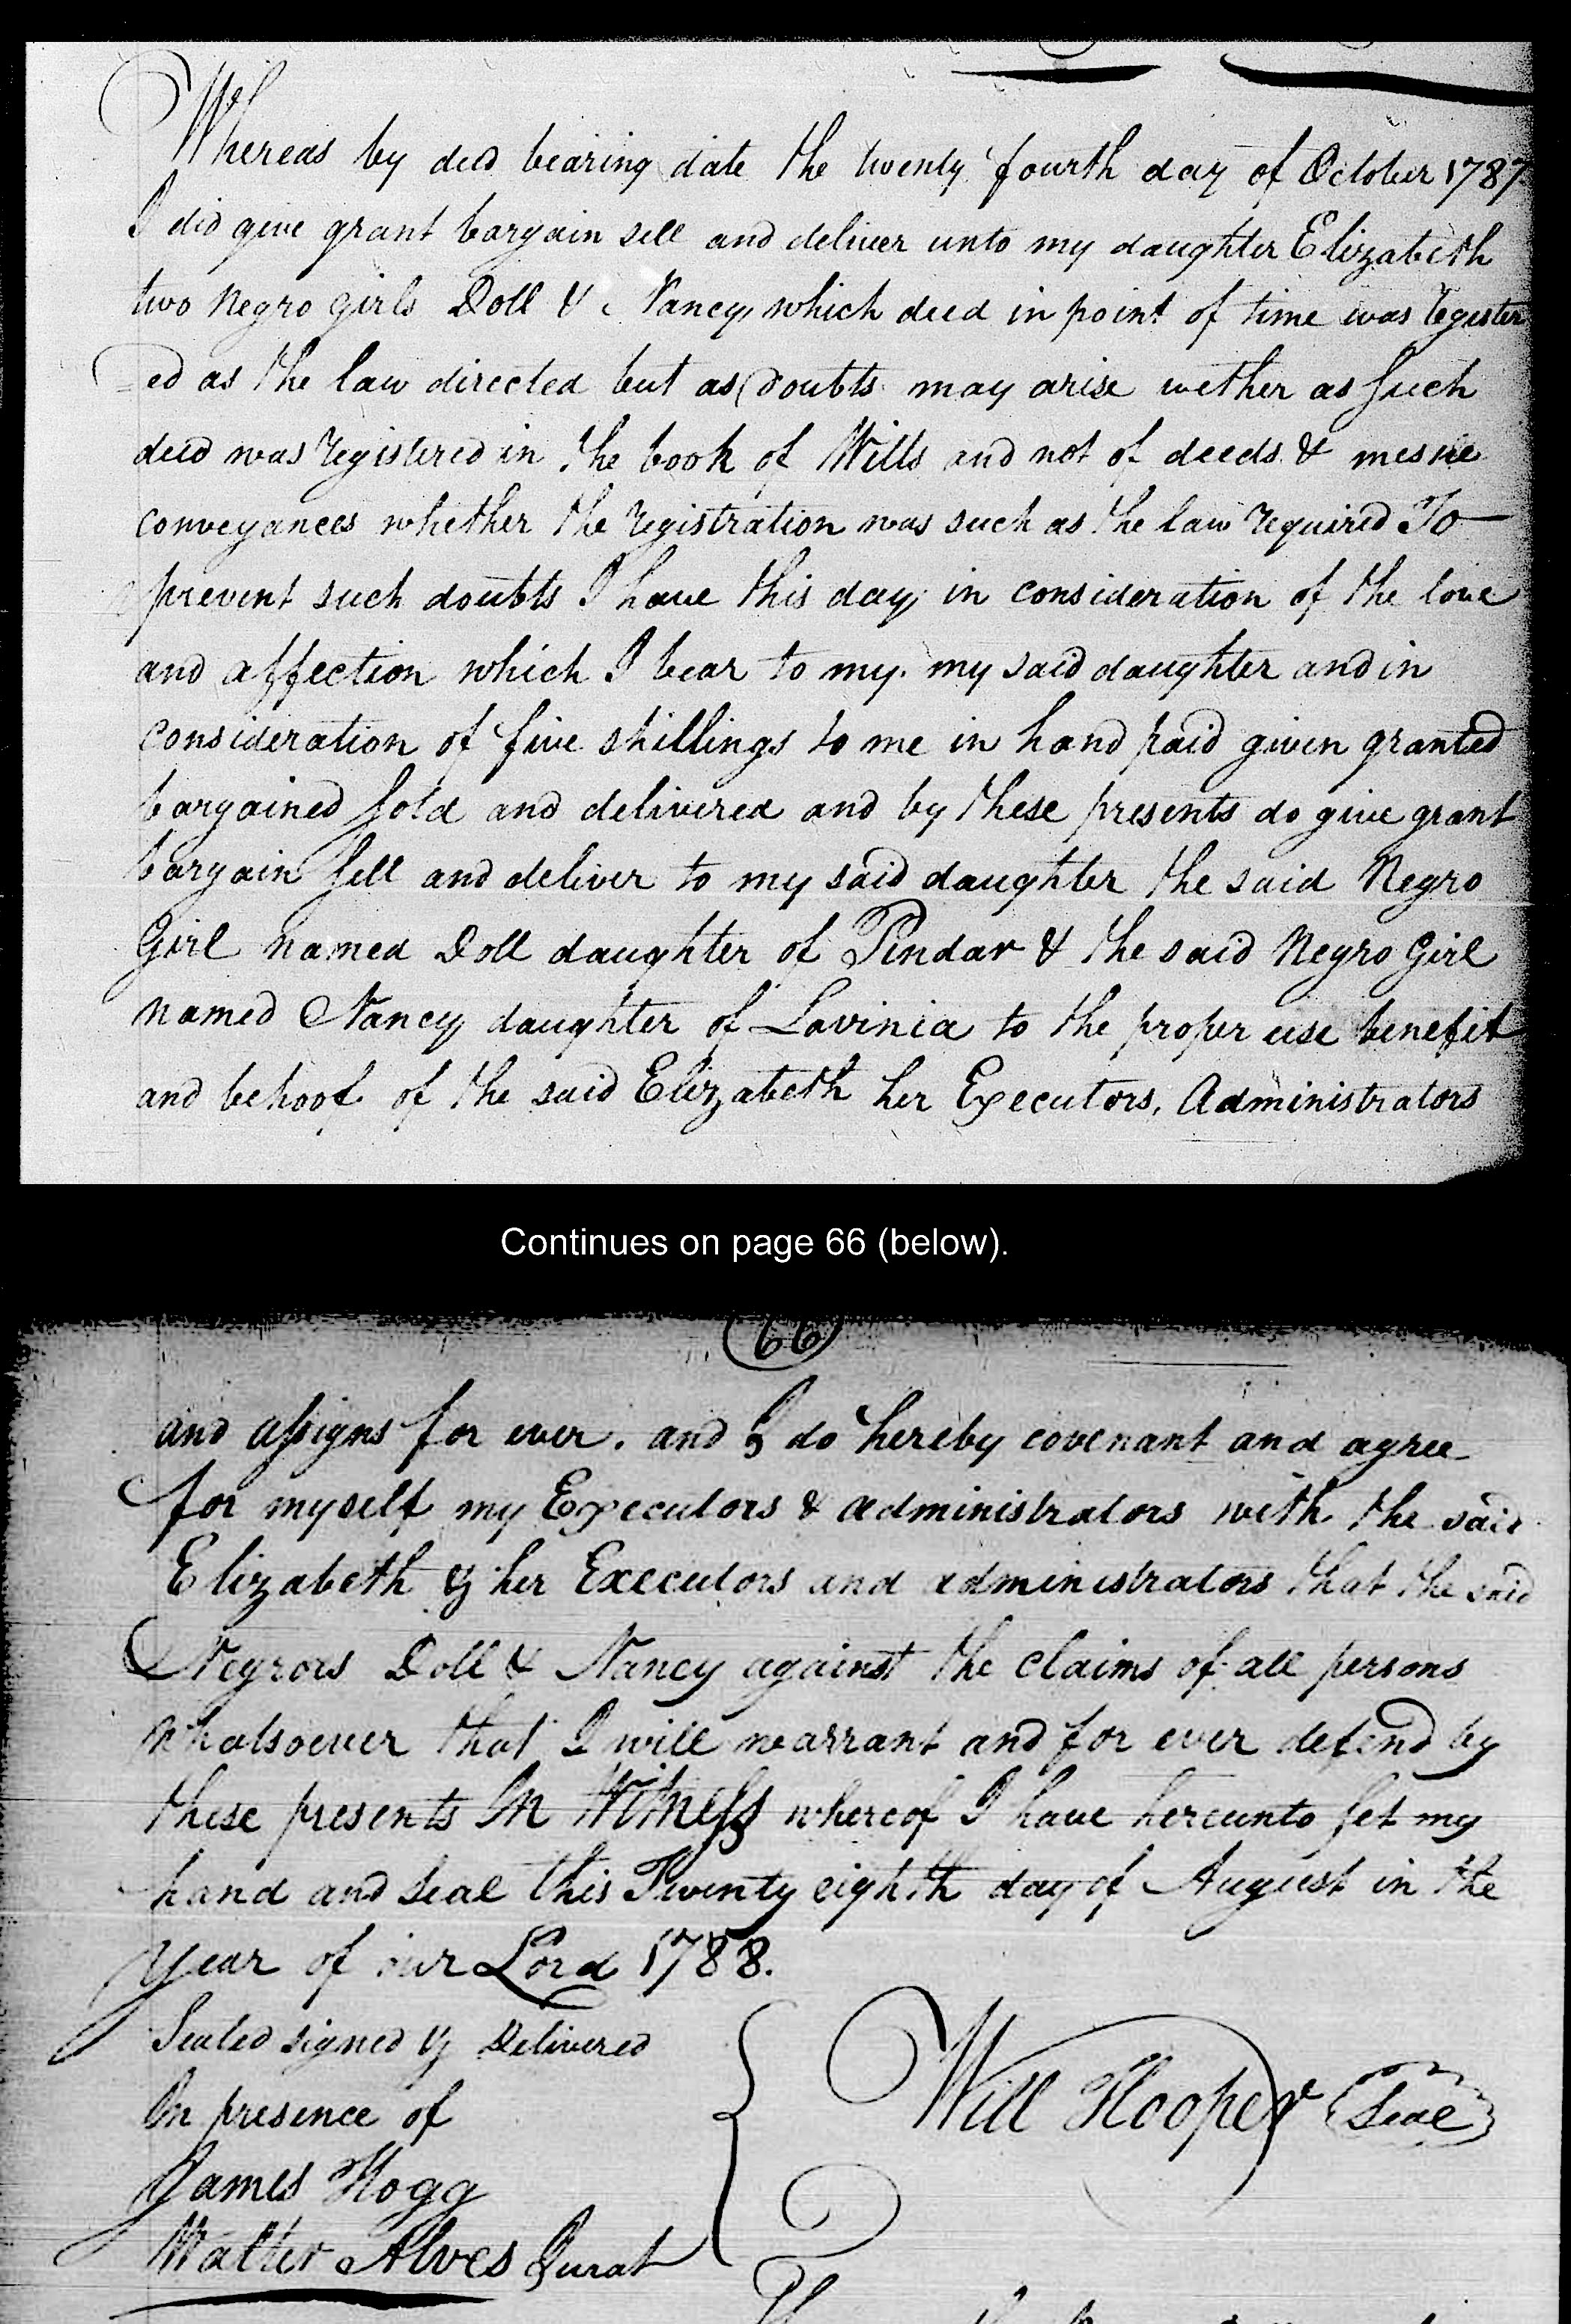 Whereas by deed bearing date the twenty fourth day of October 1787
I did give grant bargain sell and deliver unto my daughter Elizabeth
two Negro girls Doll & Nancy, which deed in point of time was register
=ed as the law directed but as doubts may arise wether as such
deed was registered in the book of Wills and not of deeds & mesne
conveyances whether the registration was such as the law required To
prevent such doubts I have this day in consideration of the love
and affection which I bear to my. my said daughter and in
consideration of five shillings to me in hand paid given granted
bargained sold and delivered and by these presents do give grant
bargain sell and deliver to my said daughter the said Negro
Girl named Doll daughter of Pindar & the said Negro Girl
named Nancy daughter of Lavinia to the proper use benefit
and behoof of the said Elizabeth her Executors, Administrators
Continues on page 66 (below).
66
and assigns for ever. and I do hereby covenant and agree
for myself my Executors & administrators with the said
Elizabeth & her Executors and administrators that the said
Negrors Doll & Nancy against the claims of all persons
whatsoever that I will warrant and for ever defend by
these presents In Witness whereof I have hereunto set my
hand and seal this Twenty eighth day of August in the
year of our Lord 1788.
Sealed signed & Delivered
In presence of
Will Hooper Seal
James Hogg
Walter Alves Jurat